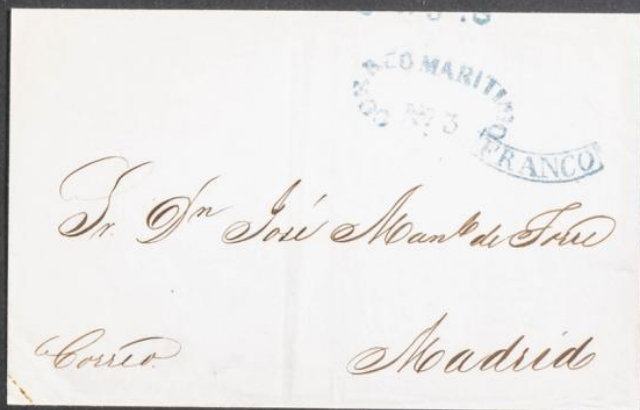 CORREO MARITIMO
Nº 3
FRANCO
Sr. Dn José Manl. de Torre
Correo.
Madrid